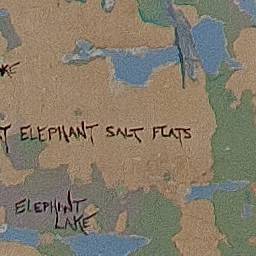 ELEPHANT SALT FLATS
ELEPHANT
LAKE